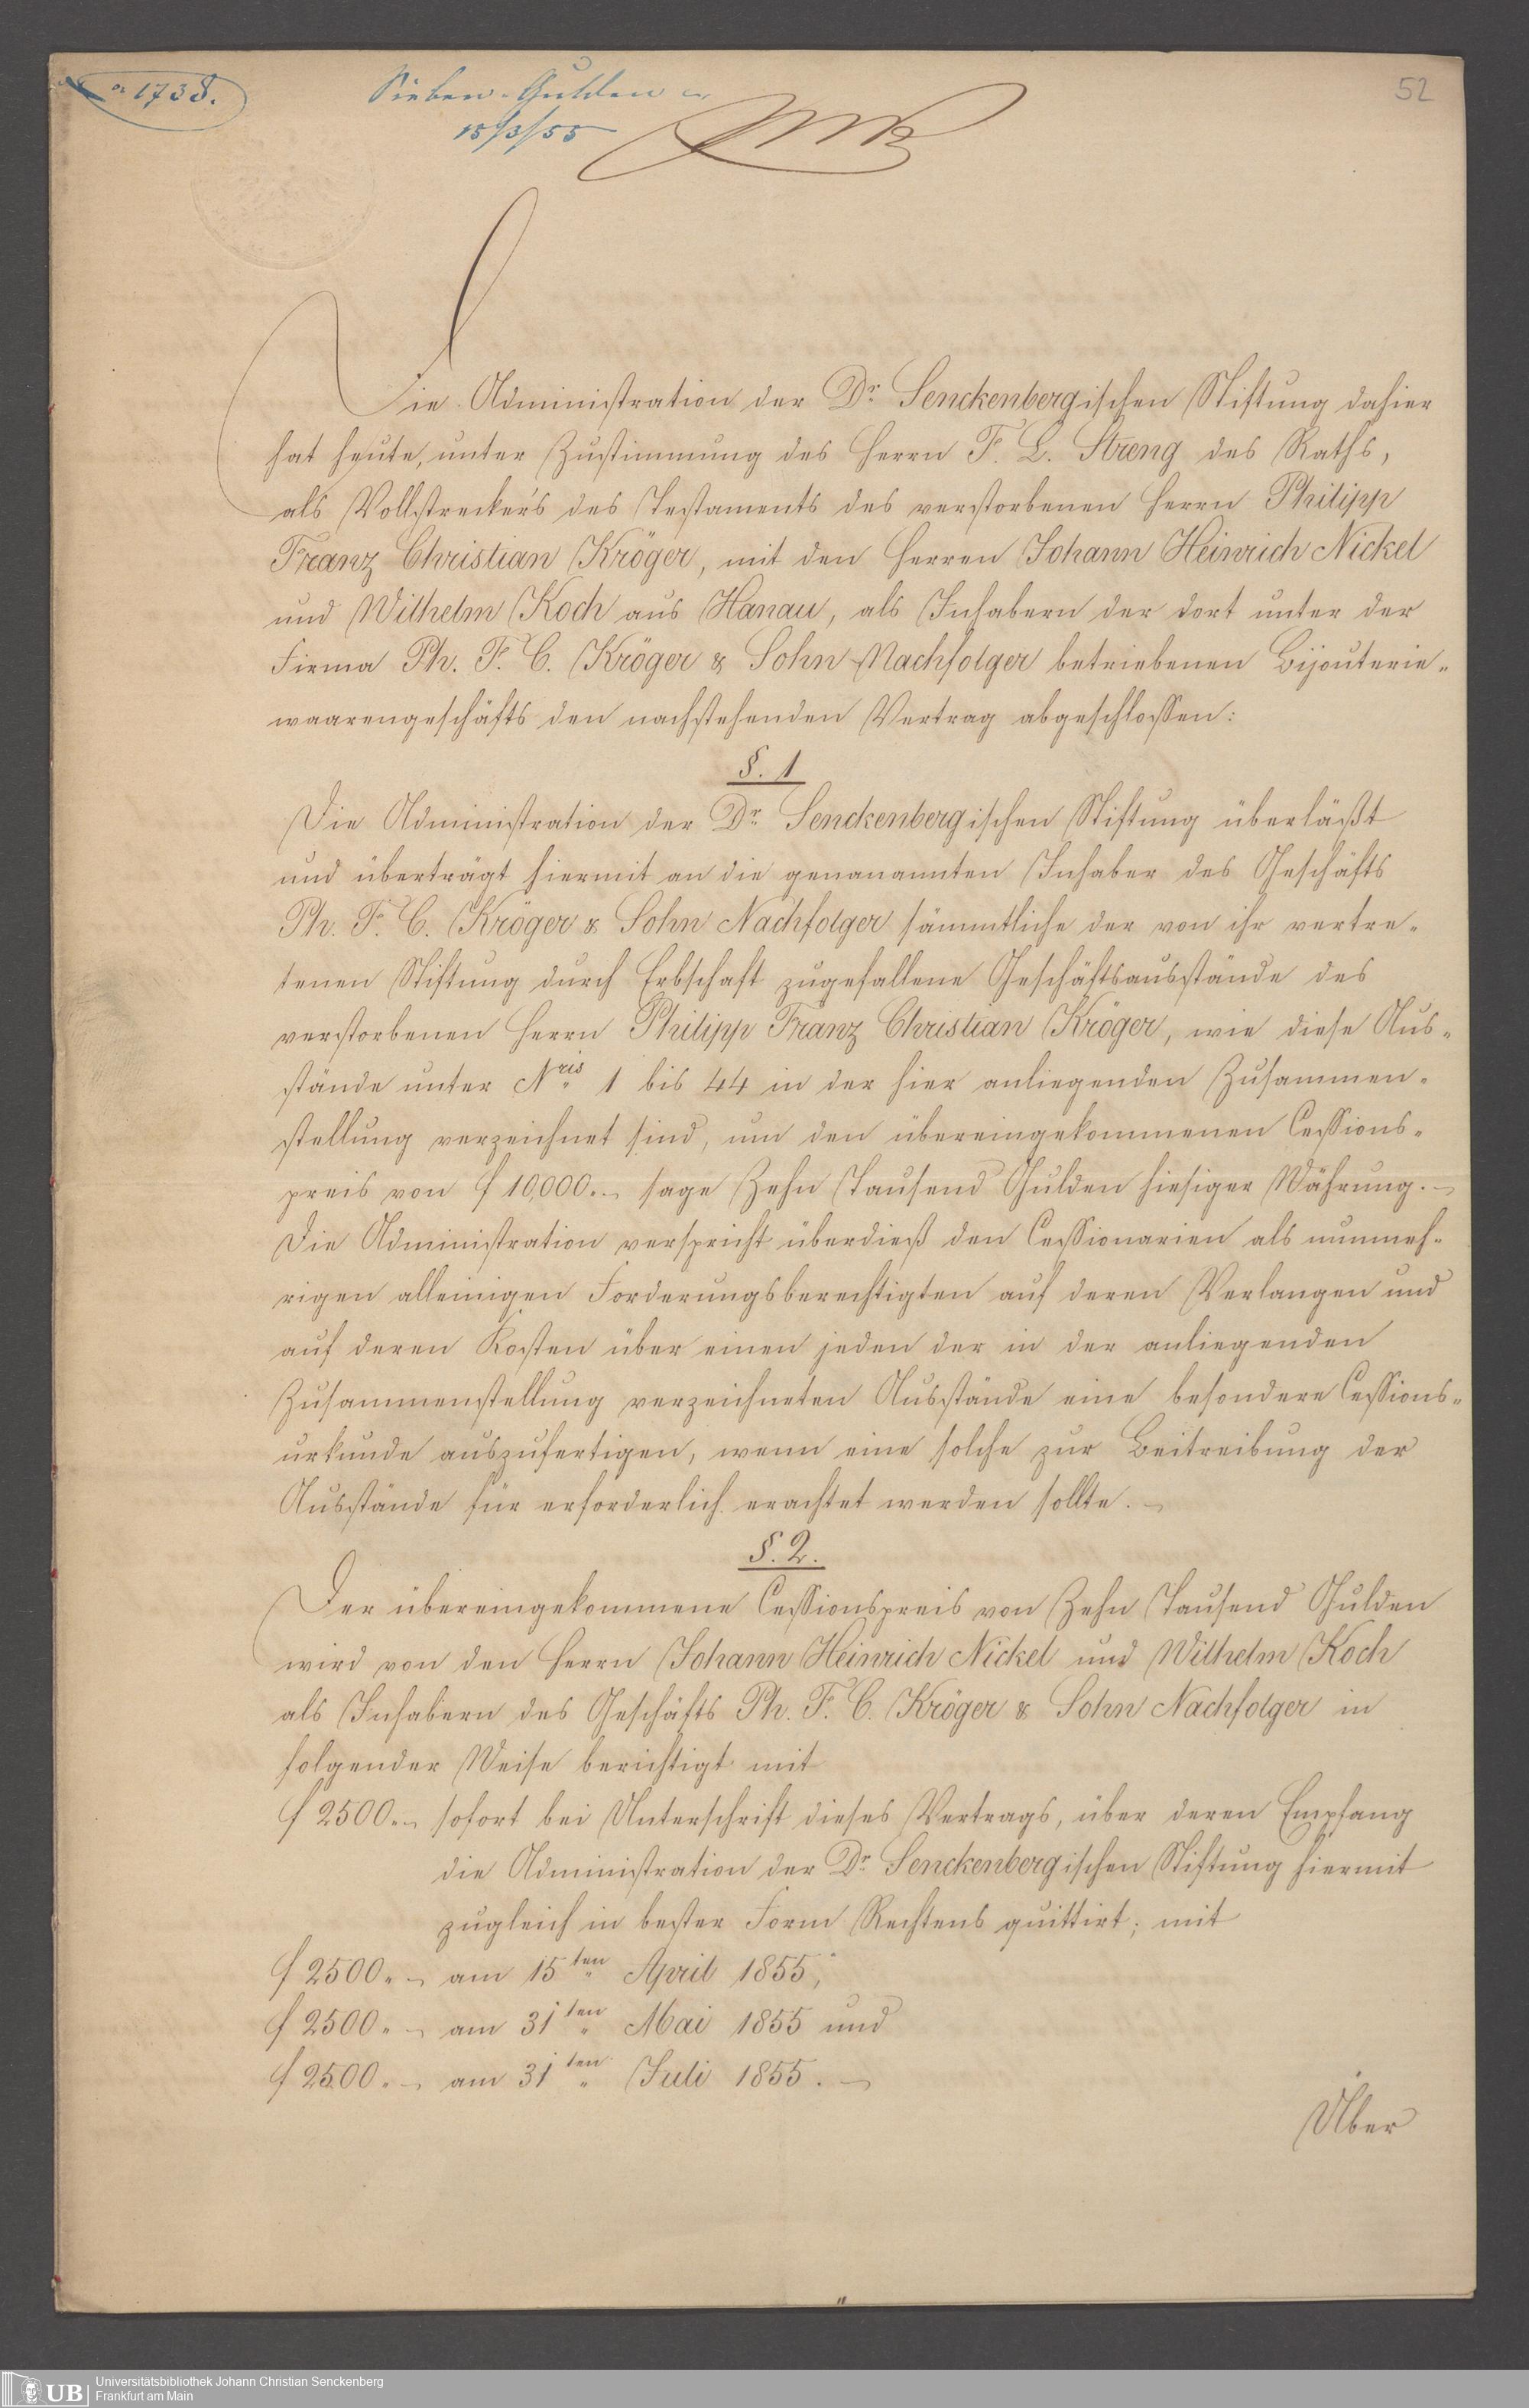 No 1738.
Sieben Gulden
15/3/55
52
Die Administration der Dr. Senckenbergischen Stiftung dahier
hat heute, unter Zustimmung des Herrn F. L. Streng des Raths,
als Vollstreckers des Testaments des verstorbenen Herrn Philipp
Franz Christian Kröger, mit den Herren Johann Heinrich Nickel
und Wilhelm Koch aus Hanau, als Inhabern der dort unter der
Firma Ph. F. C. Kröger & Sohn Nachfolger betriebenen Bijouterie-
waarengeschäfts den nachstehenden Vertrag abgeschlossen:
§. 1
Die Administration der Dr. Senckenbergischen Stiftung überläßt
und überträgt hiermit an die genanannten Inhaber des Geschäfts
Ph. F. C. Kröger & Sohn Nachfolger sämmtliche der von ihr vertre-
tenen Stiftung durch Erbschaft zugefallene Geschäftsausstände des
verstorbenen Herrn Philipp Franz Christian Kröger, wie diese Aus-
stände unter Nris 1 bis 44 in der hier anliegenden Zusammen-
stellung verzeichnet sind, um den übereingekommenen Cessions-
preis von f 10,000.- sage Zehn Tausend Gulden hiesiger Währung.-
Die Administration verspricht überdieß den Cessionarien als nunmeh-
rigen alleinigen Forderungsberechtigten auf deren Verlangen und
auf deren Kosten über einen jeden der in der anliegenden
Zusammenstellung verzeichneten Ausstände eine besondere Cessions-
urkunde auszufertigen, wenn eine solche zur Beitreibung der
Ausstände für erforderlich erachtet werden sollte.-
§. 2.
Der übereingekommene Cessionspreis von Zehn Tausend Gulden
wird von den Herrn Johann Heinrich Nickel und Wilhelm Koch
als Inhabern des Geschäfts Ph. F. C. Kröger & Sohn Nachfolger in
folgender Weise berichtigt mit
f 2500.- sofort bei Unterschrift dieses Vertrags, über deren Empfang
die Administration der Dr. Senckenbergischen Stiftung hiermit
zugleich in bester Form Rechtens quittirt; mit
f 2500.- am 15ten April 1855;
f 2500.- am 31ten Mai 1855 und
f 2500.- am 31ten Juli 1855.-
Über
UB
Universitätsbibliothek Johann Christian Senckenberg
Frankfurt am Main